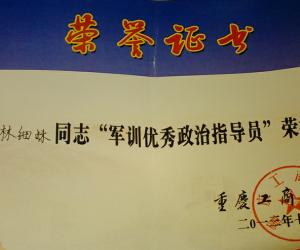 荣誉证书
林细妹同志“军训优秀政治指导员”荣
重庆工商
二〇一三年十